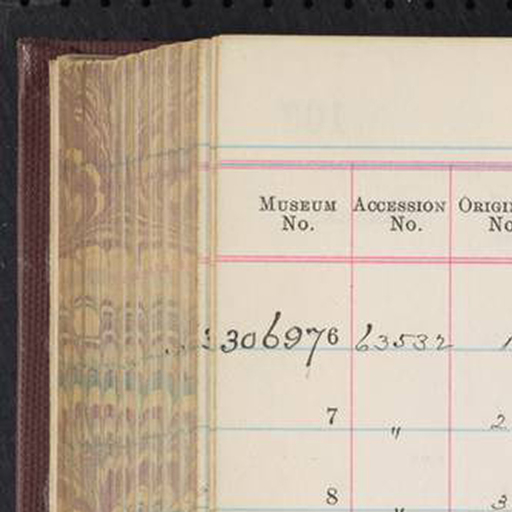 MUSEUM No. ACCESSION No. ORIGI No
306976 63532 1
7 " 2
8 " 3